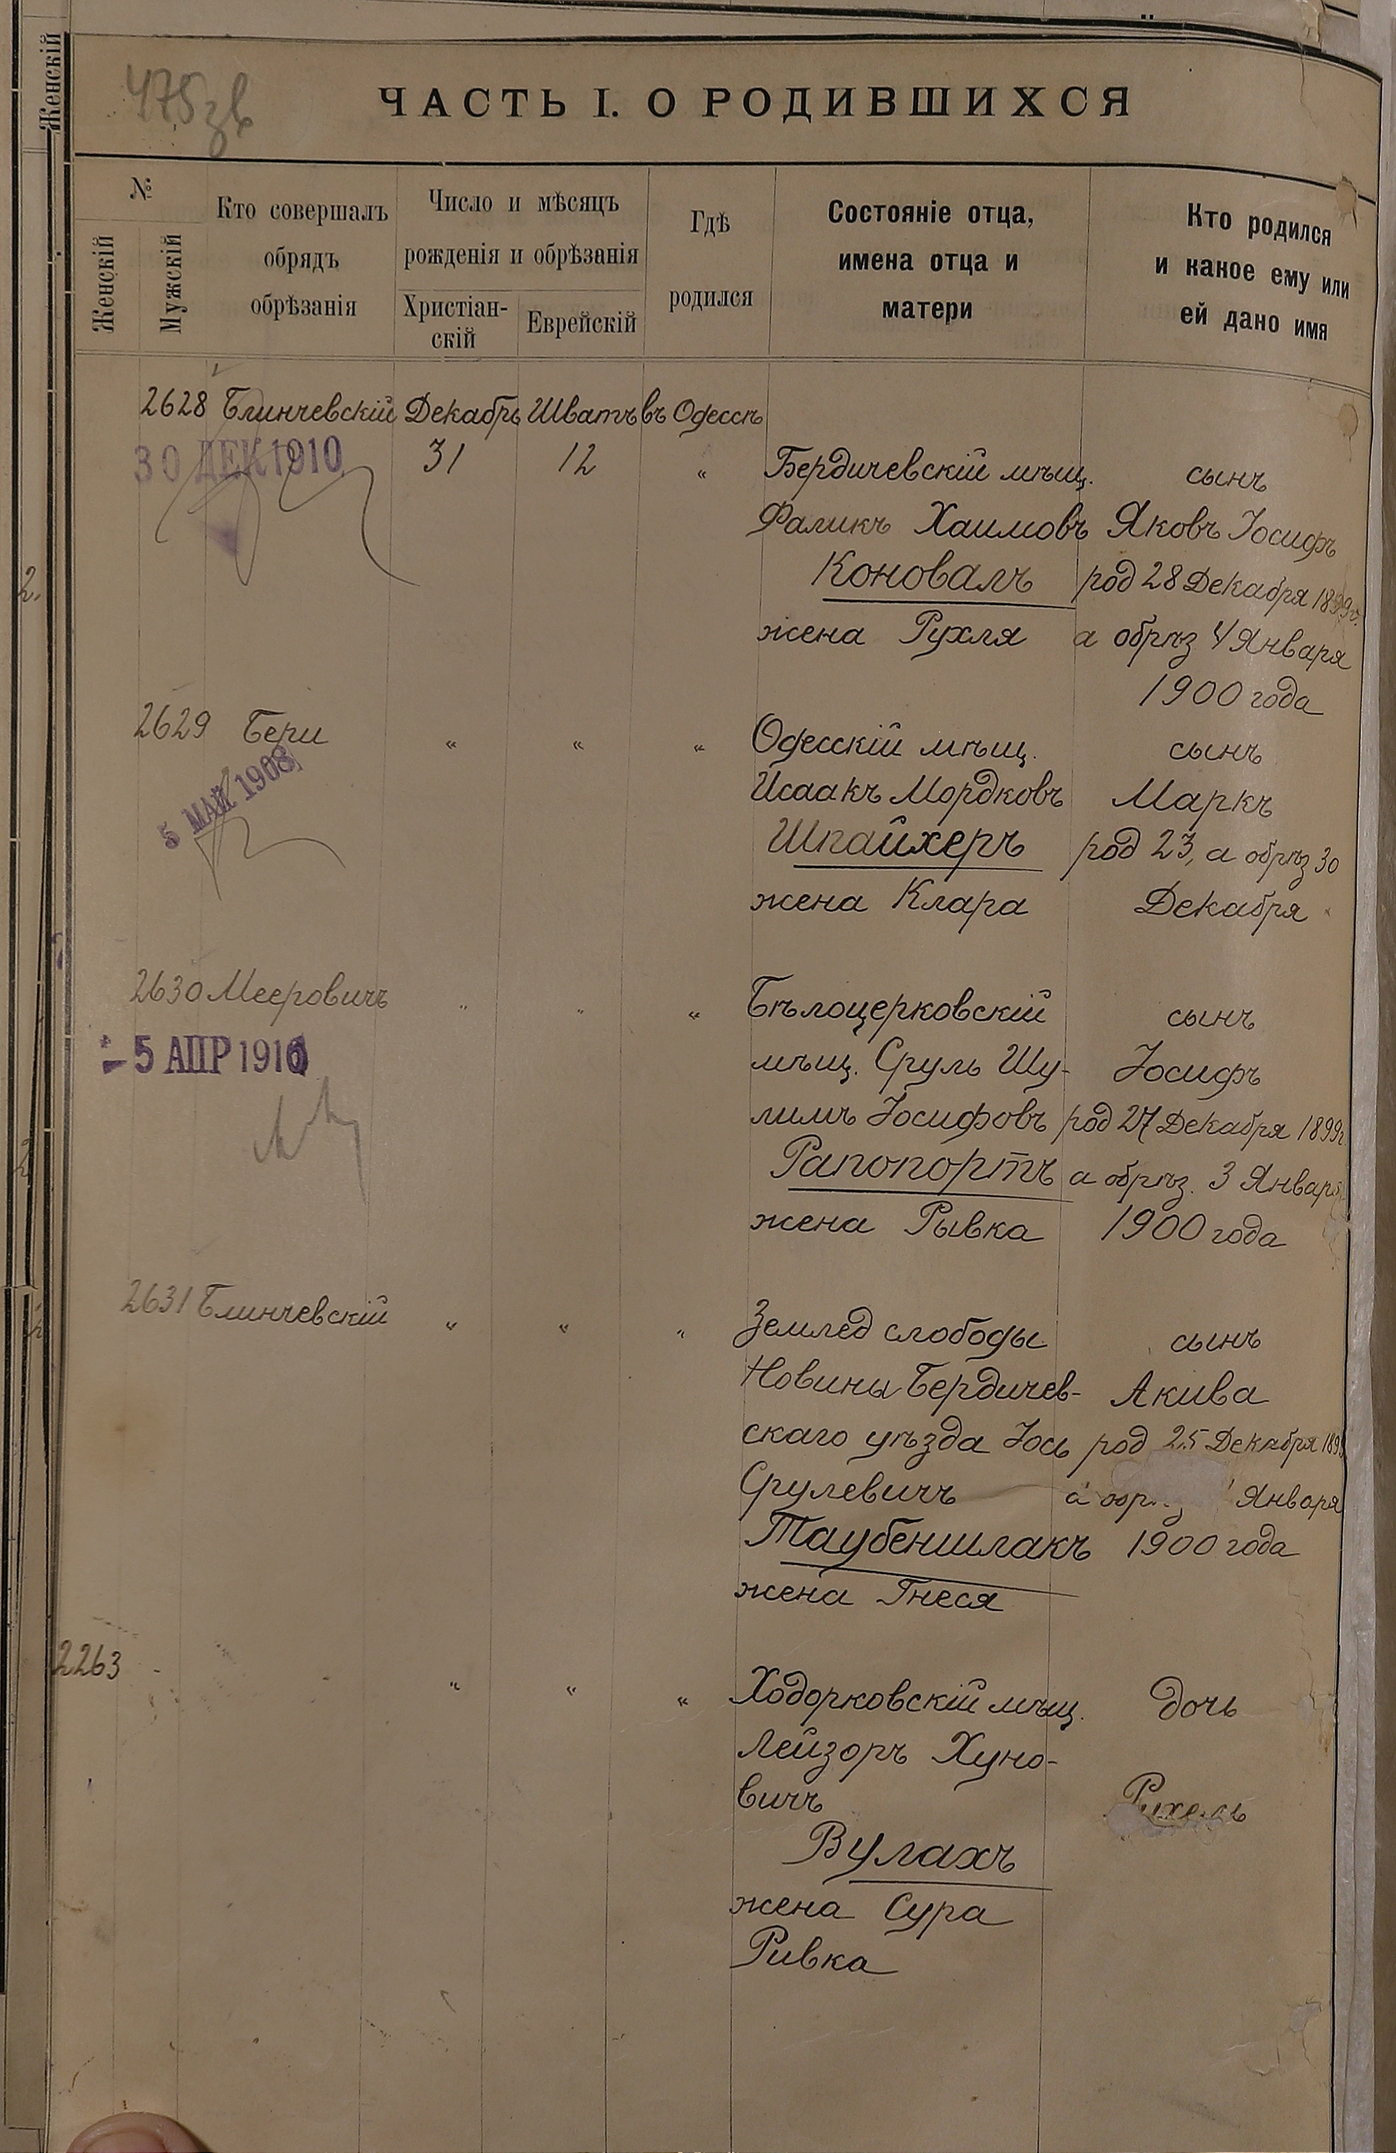 Женскій
475 зв
ЧАСТЬ I. О РОДИВШИХСЯ
№
Женскій
Мужскій
Кто совершалъ
обрядъ
обрѣзанія
Число и мѣсяцъ
рожденія и обрѣзанія
Христіан-
скій
Еврейскій
Гдѣ
родился
Состояніе отца,
имена отца и
матери
Кто родился
и какое ему или
ей дано имя
2628 Блинчевскій Декабрь Шватъ въ Одессѣ
30 ДЕК 1910
31 12 "
Бердичевскій мѣщ. сынъ
Фаликъ Хаимовъ Яковъ Іосифъ
Коновалъ род 28 Декабря 1899г.
жена Рухля а обрѣз 4 Января
1900 года
2629 Бери " " " Одесскій мѣщ. сынъ
5 МАЙ 1908
Исаакъ Мордковъ Маркъ
Шпайхеръ род 23, а обрѣз 30
жена Клара Декабря
2630 Мееровичъ " " " Бѣлоцерковскій сынъ
5 АПР 1916
мѣщ. Сруль Шу- Іосифъ
лимъ Іосифовъ род 27 Декабря 1899г.
Рапопортъ а обрѣз. 3 Января
жена Рывка 1900 года
2631 Блинчевскій " " " Землед слободы сынъ
Новины Бердичев- Акива
скаго уѣзда Іось род 25 Декабря 189
Срулевичъ а Января
Таубеншлакъ 1900 года
жена Гнеся
2263 " " " Ходорковскій мѣщ. дочь
Лейзоръ Хуно-
вичъ Рухель
Вулахъ
жена Сура
Ривка